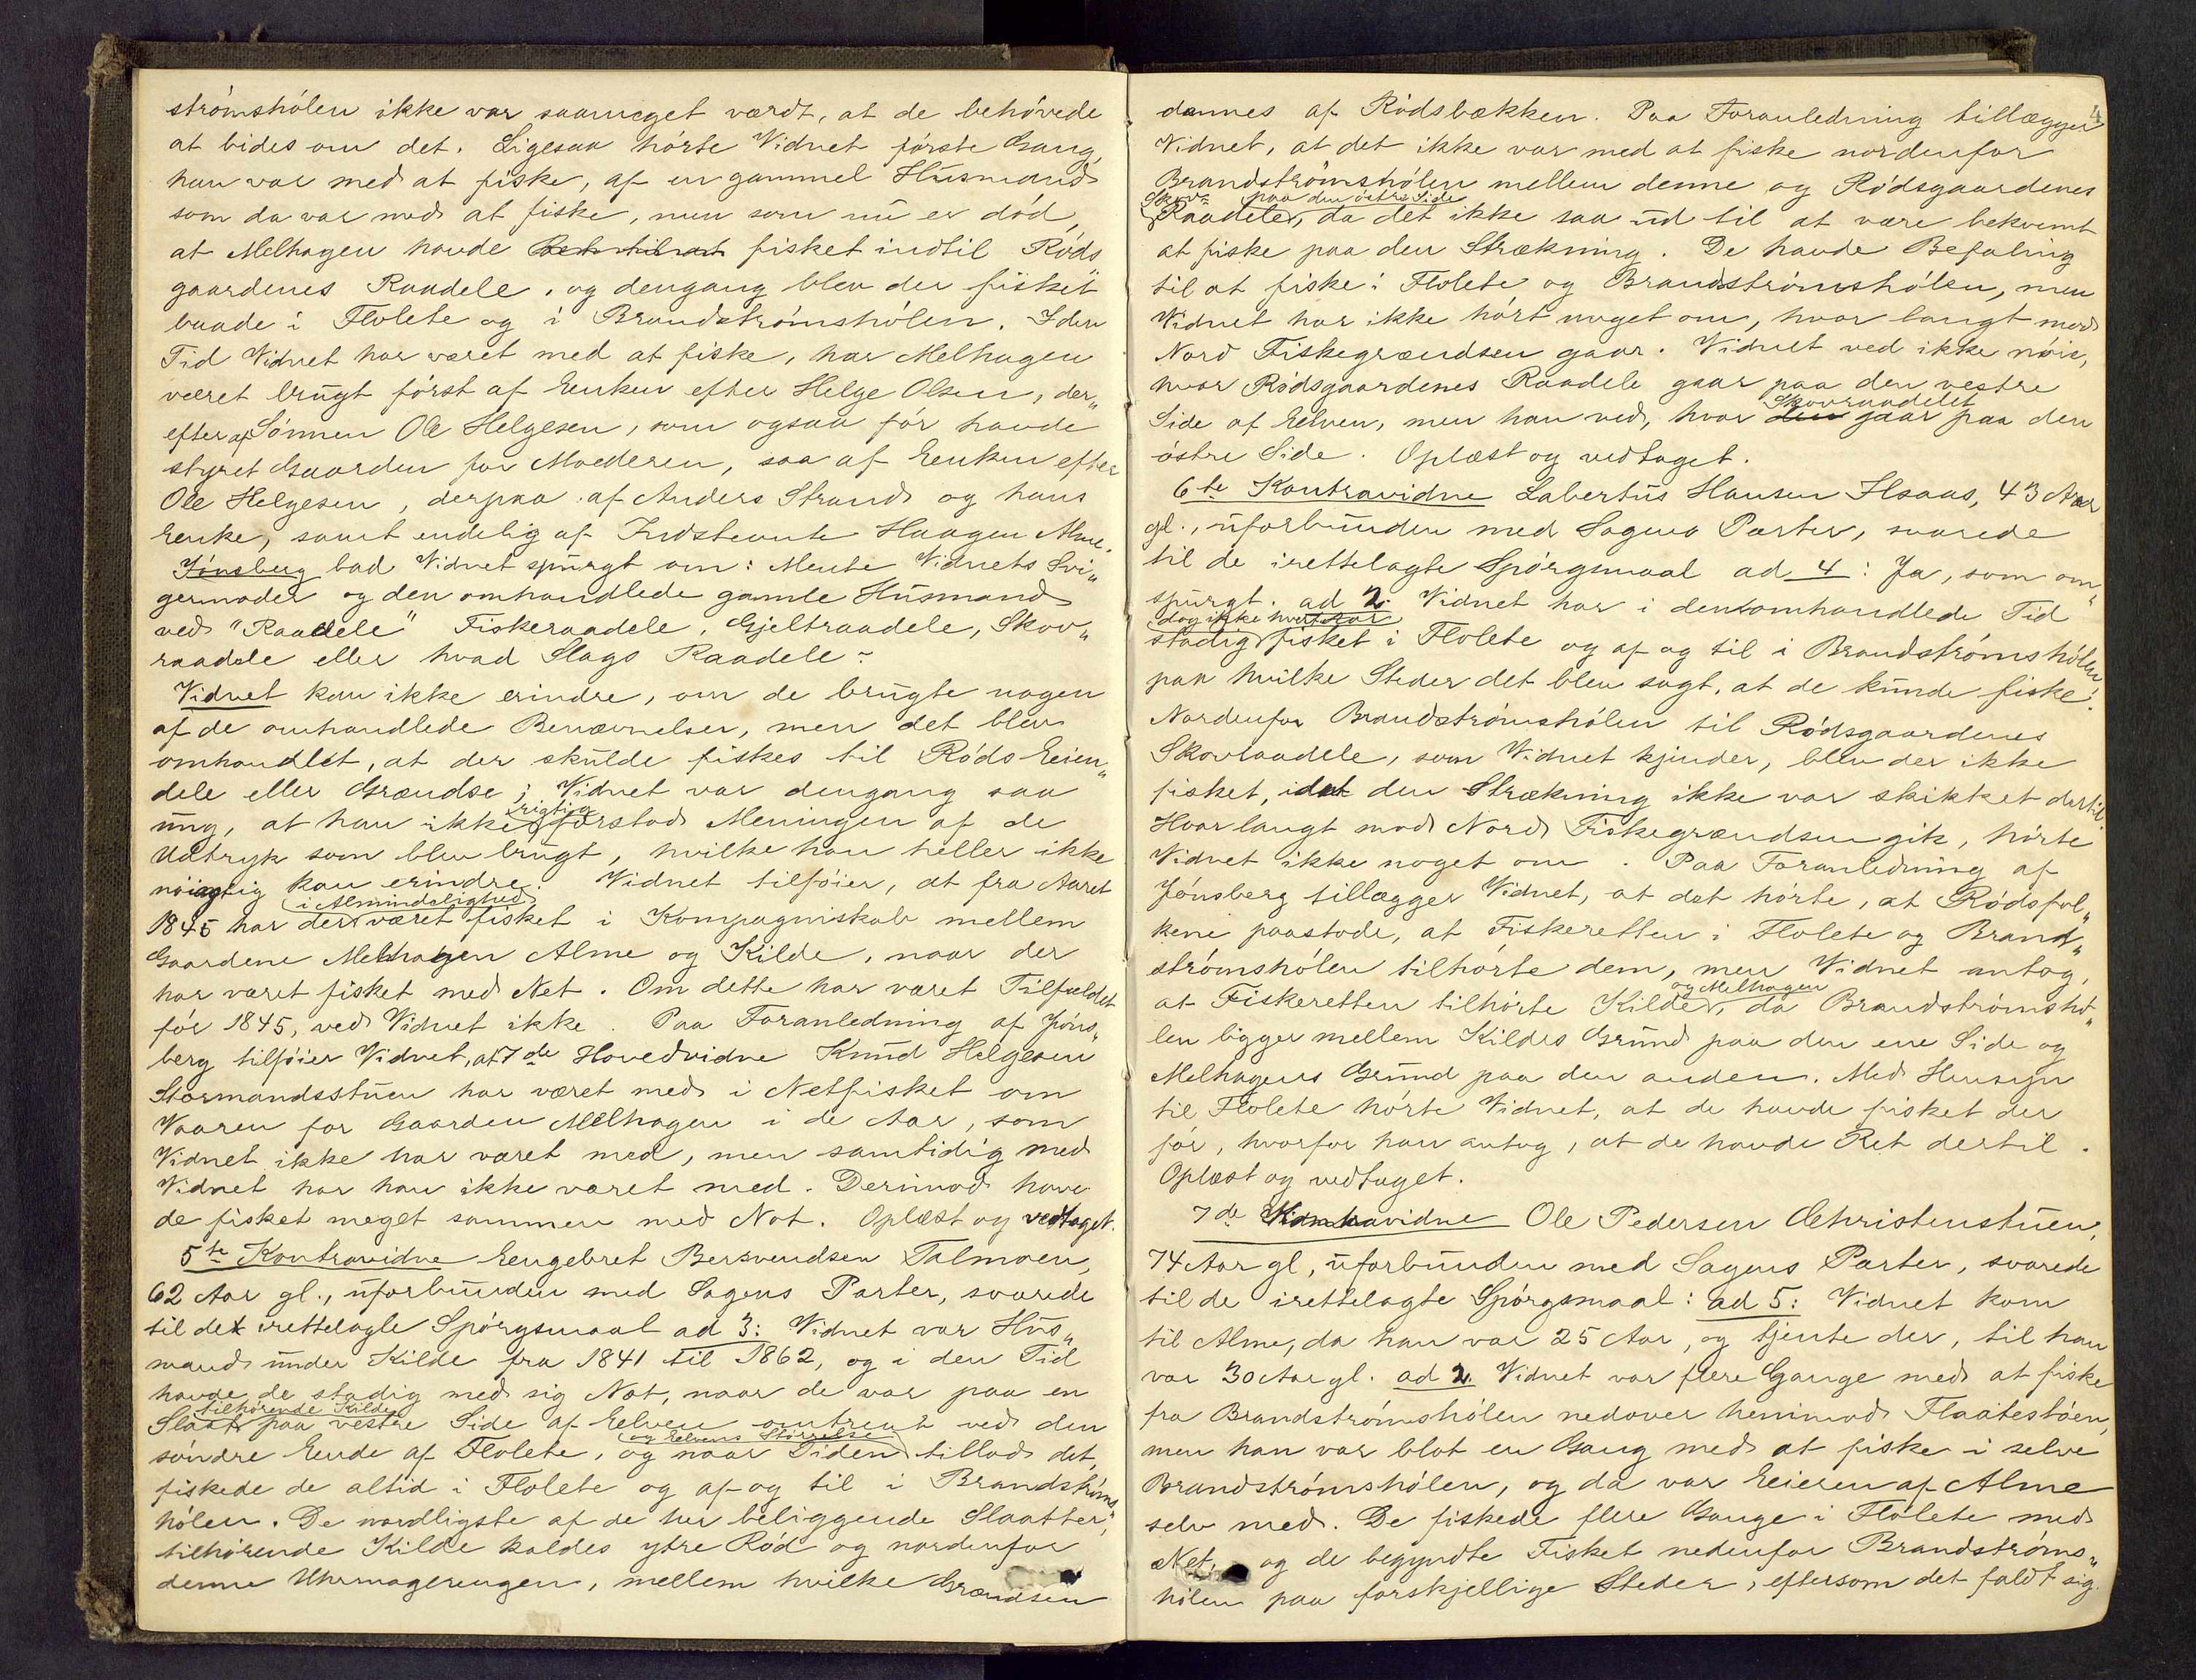 strömshölen ikke var saameget værdt, at de behövede
at bides om det. Ligesaa hörte Vidnet förste Gang,
han var med at fiske, af en gammel Husmand
som da var med at fiske, men som nu er död,
at Melhagen havde fisket indtil Röds
gaardenes Raadele, og dengang blev der fisket
baade i Flolete og i Brandströmshölen. I den
Tid Vidnet har været med at fiske, har Melhagen
været brugt först af Enken efter Helge Olsen, der„
efter af Sönnen Ole Helgesen, som ogsaa för havde
styret Gaarden for Moderen, saa af Enken efter
Ole Helgesen, derpaa af Anders Strand og hans
Enke, samt endelig af Indstevnte Haagen Alme.
Jönsberg bad Vidnet spurgt om: Mente Vidnets Svi„
germoder og den omhandlede gamle Husmand
ved "Raadele" Fiskeraadele, Gjeltraadele, Skov„
raadele eller hvad Slags Raadele?
Vidnet kan ikke erindre, om de brugte nogen
af de omhandlede Benævnelser, men det blev
omhandlet, at der skulde fiskes til Röds Eien„
dele eller Grændse; Vidnet var dengang saa
ung, at han ikke rigtig forstod Meningen af de
Udtryk som blev brugt, hvilke han heller ikke
nöiagtig kan erindre. Vidnet tilföier, at fra Aaret
1845 har der i Almindelighed været fisket i Kompagniskab mellem
Gaardene Melhagen Alme og Kilde, naar der
har været fisket med Not. Om dette har været Tilfældet
för 1845, ved Vidnet ikke. Paa Foranledning af Jöns„
berg tilföier Vidnet, at 7de Hovedvidne Knud Helgesen
Stormandsstuen har været med i Notfisket om
Vaaren for Gaarden Melhagen i de Aar, som
Vidnet ikke har været med, men samtidig med
Vidnet har han ikke været med. Derimod have
de fisket meget sammen med Not. Oplæst og vedtaget.
5te Kontravidne Engebret Bersvendsen Talmoen,
62 Aar gl., uforbunden med Sagens Parter, svarede
til det irettelagte Spörgsmaal ad 3: Vidnet var Hus„
mand under Kilde fra 1841 til 1862, og i den Tid
havde de stadig med sig Not, naar de var paa en
Slaat tilhörende Kilde paa vestre Side af Elven omtrent ved den
söndre Ende af Flolete, og naar Tiden og Elvens Störrelse tillod det,
fiskede de altid i Flolete og af og til i Brandströms
hölen. De nordligste af de her beliggende Slaatter,
tilhörende Kilde kaldes ytre Röd og nordenfor
denne Uhrmagerengen, mellem hvilke Grændsen
4
dannes af Rödsbækken. Paa Foranledning tillægger
Vidnet, at det ikke var med at fiske nordenfor
Brandströmshölen mellem denne og Rödsgaardenes
Skov- Raadele paa den östre Side, da det ikke saa ud til at være bekvemt
at fiske paa den Strækning. De havde Befaling
til at fiske i Flolete og Brandströmshölen, men
Vidnet har ikke hört noget om, hvor langt mod
Nord Fiskegrændsen gaar. Vidnet ved ikke nöie,
hvor Rödsgaardenes Raadele gaar paa den vestre
Side af Elven, men han ved, hvor Skovraadelet gaar paa den
östre Side. Oplæst og vedtaget.
6te Kontravidne Labertus Hansen Ilsaas, 43 Aar
gl., uforbunden med Sagens Parter, svarede
til de irettelagte Spörgsmaal ad 4: Ja, som om„
spurgt. ad 2. Vidnet har i den omhandlede Tid
stadig dog ikke hvert Aar fisket i Flolete og af og til i Brandströmshölen
paa hvilke Steder det blev sagt, at de kunde fiske.
Nordenfor Brandströmshölen til Rödsgaardenes
Skovraadele, som Vidnet kjender, blev der ikke
fisket, idet den Strækning ikke var skikket dertil.
Hvor langt mod Nord Fiskegrændsen gik, hörte
Vidnet ikke noget om. Paa Foranledning af
Jönsberg tillægger Vidnet, at det hörte, at Rödsfol„
kene paastode, at Fiskeretten i Flolete og Brand„
strömshölen tilhörte dem, men Vidnet antog,
at Fiskeretten tilhörte Kilde og Melhagen, da Brandströmshö„
len ligger mellem Kildes Grund paa den ene Side og
Melhagens Grund paa den anden. Med Hensyn
til Flolete hörte Vidnet, at de havde fisket der
för, hvorfor han antog, at de havde Ret dertil.
Oplæst og vedtaget.
7de Kontravidne Ole Pedersen Christenstuen,
74 Aar gl, uforbunden med Sagens Parter, svarede
til de irettelagte Spörgsmaal: ad 5: Vidnet kom
til Alme, da han var 25 Aar, og tjente der, til han
var 30 Aar gl. ad 2. Vidnet var flere Gange med at fiske
fra Brandströmshölen nedover henimod Flaatestöen,
men han var blot en Gang med at fiske i selve
Brandströmshölen, og da var Eieren af Alme
selv med. De fiskede flere Gange i Flolete med
Not, og de begyndte Fisket nedenfor Brandströms„
hölen paa forskjellige Steder, eftersom det faldt sig.